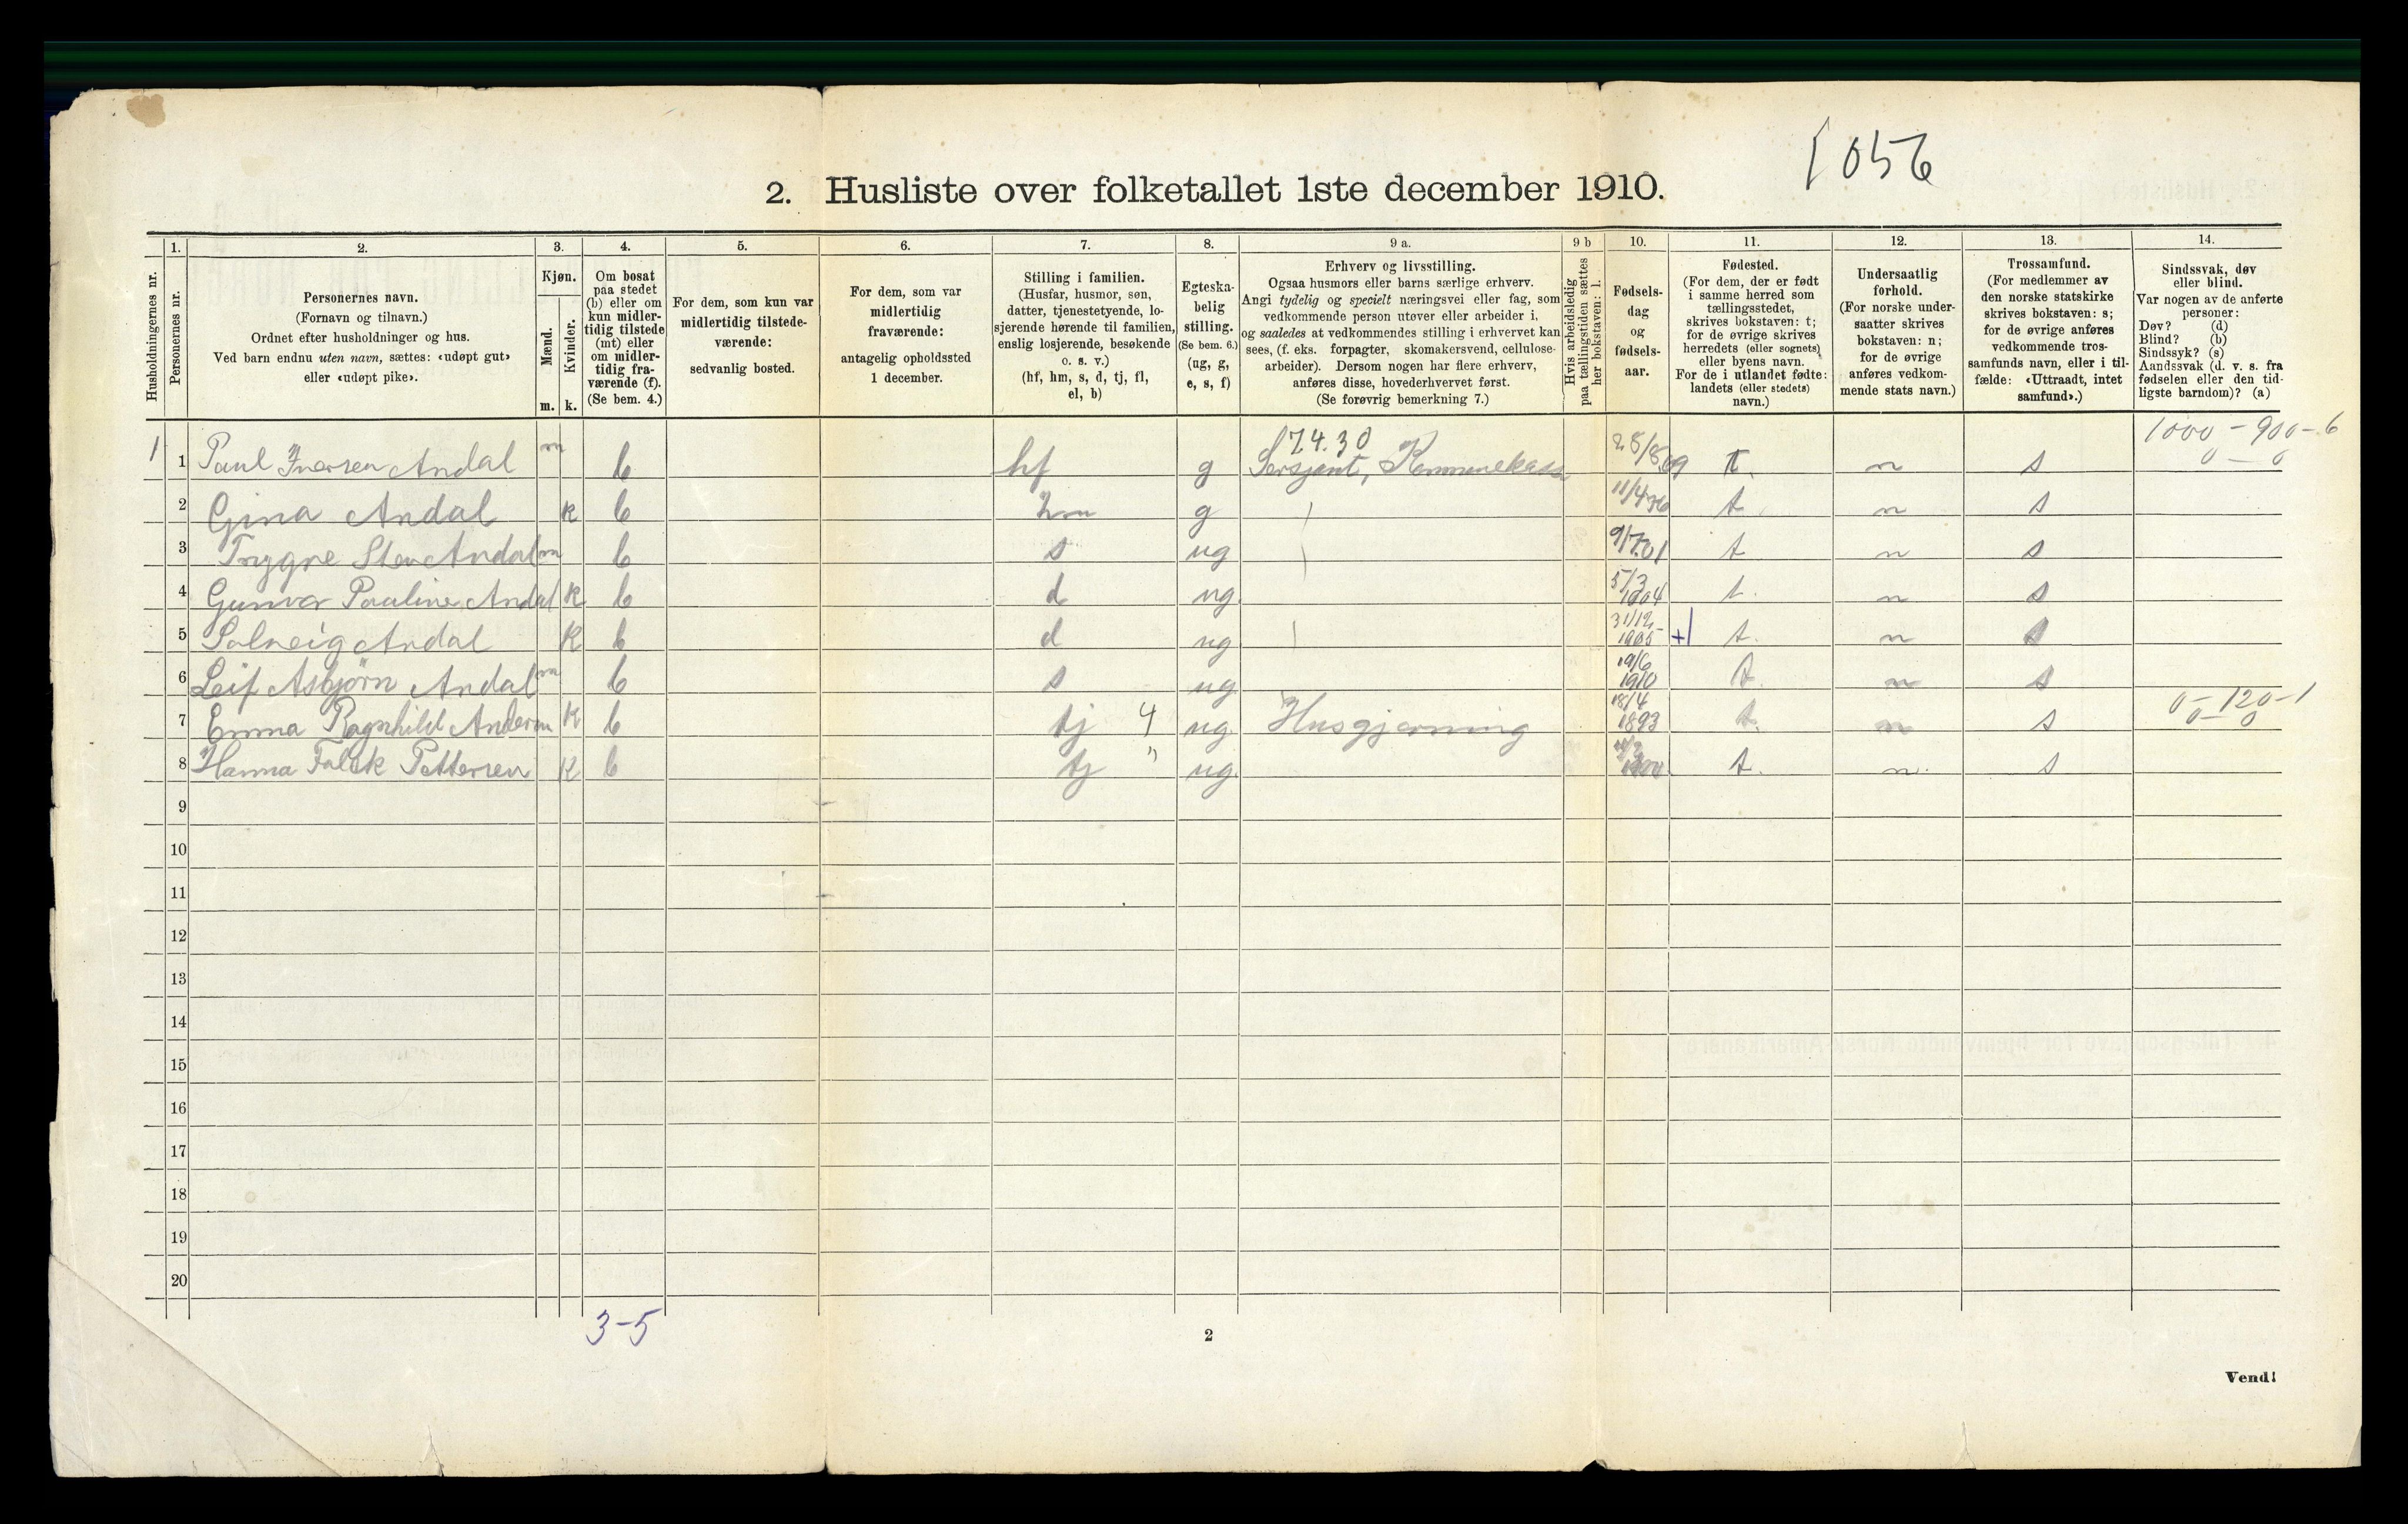 1056
2. Husliste over folketallet 1ste december 1910.
Husholdningernes nr.
1.
Personernes nr.
2.
Personernes navn.
(Fornavn og tilnavn.)
Ordnet efter husholdninger og hus.
Ved barn endnu uten navn, sættes: «udøpt gut»
eller «udøpt pike».
3.
Kjøn.
Mænd.
Kvinder.
m. k.
4.
Om bosat
paa stedet
(b) eller om
kun midler-
tidig tilstede
(mt) eller
om midler-
tidig fra-
værende (f).
(Se bem. 4.)
5.
For dem, som kun var
midlertidig tilstede-
værende:
sedvanlig bosted.
6.
For dem, som var
midlertidig
fraværende:
antagelig opholdssted
1 december.
7.
Stilling i familien.
(Husfar, husmor, søn,
datter, tjenestetyende, lo-
sjerende hørende til familien,
enslig losjerende, besøkende
o. s. v.)
(hf, hm, s, d, tj, fl,
el, b)
8.
Egteska-
belig
stilling.
(Se bem. 6.)
(ug, g,
e, s, f)
9 a.
Erhverv og livsstilling.
Ogsaa husmors eller barns særlige erhverv.
Angi tydelig og specielt næringsvei eller fag, som
vedkommende person utøver eller arbeider i,
og saaledes at vedkommendes stilling i erhvervet kan
sees, (f. eks. forpagter, skomakersvend, cellulose-
arbeider). Dersom nogen har flere erhverv,
anføres disse, hovederhvervet først.
(Se forøvrig bemerkning 7.)
9 b
Hvis arbeidsledig
paa tællingstiden sættes
her bokstaven: l.
10.
Fødsels-
dag
og
fødsels-
aar.
11.
Fødested.
(For dem, der er født
i samme herred som
tællingsstedet,
skrives bokstaven: t;
for de øvrige skrives
herredets (eller sognets)
eller byens navn.
For de i utlandet fødte:
landets (eller stedets)
navn.)
12.
Undersaatlig
forhold.
(For norske under-
saatter skrives
bokstaven: n;
for de øvrige
anføres vedkom-
mende stats navn.)
13.
Trossamfund.
(For medlemmer av
den norske statskirke
skrives bokstaven: s;
for de øvrige anføres
vedkommende tros-
samfunds navn, eller i til-
fælde: «Uttraadt, intet
samfund».)
14.
Sindssvak, døv
eller blind.
Var nogen av de anførte
personer:
Døv? (d)
Blind? (b)
Sindssyk? (s)
Aandssvak (d. v. s. fra
fødselen eller den tid-
ligste barndom)? (a)
74.30 1000 - 900 - 6
1 1 Paul Iversen Andal m b hf g Sersjant, Kommunekass 28/8 69 t. n s 0 - 0
2 Gina Andal k b hm g 11/4 76 t. n s
3 Trygve Sten Andal m b s ug 9/7 01 t n s
4 Gunvor Pauline Andal k b d ug. 5/3 1904 t. n s
5 Solveig Andal k b d ug 31/12 1905 +1 t. n s
6 Leif Asbjørn Andal m b s ug 19/6 1910 t. n s
7 Emma Ragnhild Andersen k b tj 4 ug. Husgjerning 18/4 1893 t. n s 0 - 120 - 1
0 - 0
8 Hanna Falck Pettersen k b tj " ug. t. n. s
9
10
11
12
13
14
15
16
17
18
19
20
3-5
2
Vend!